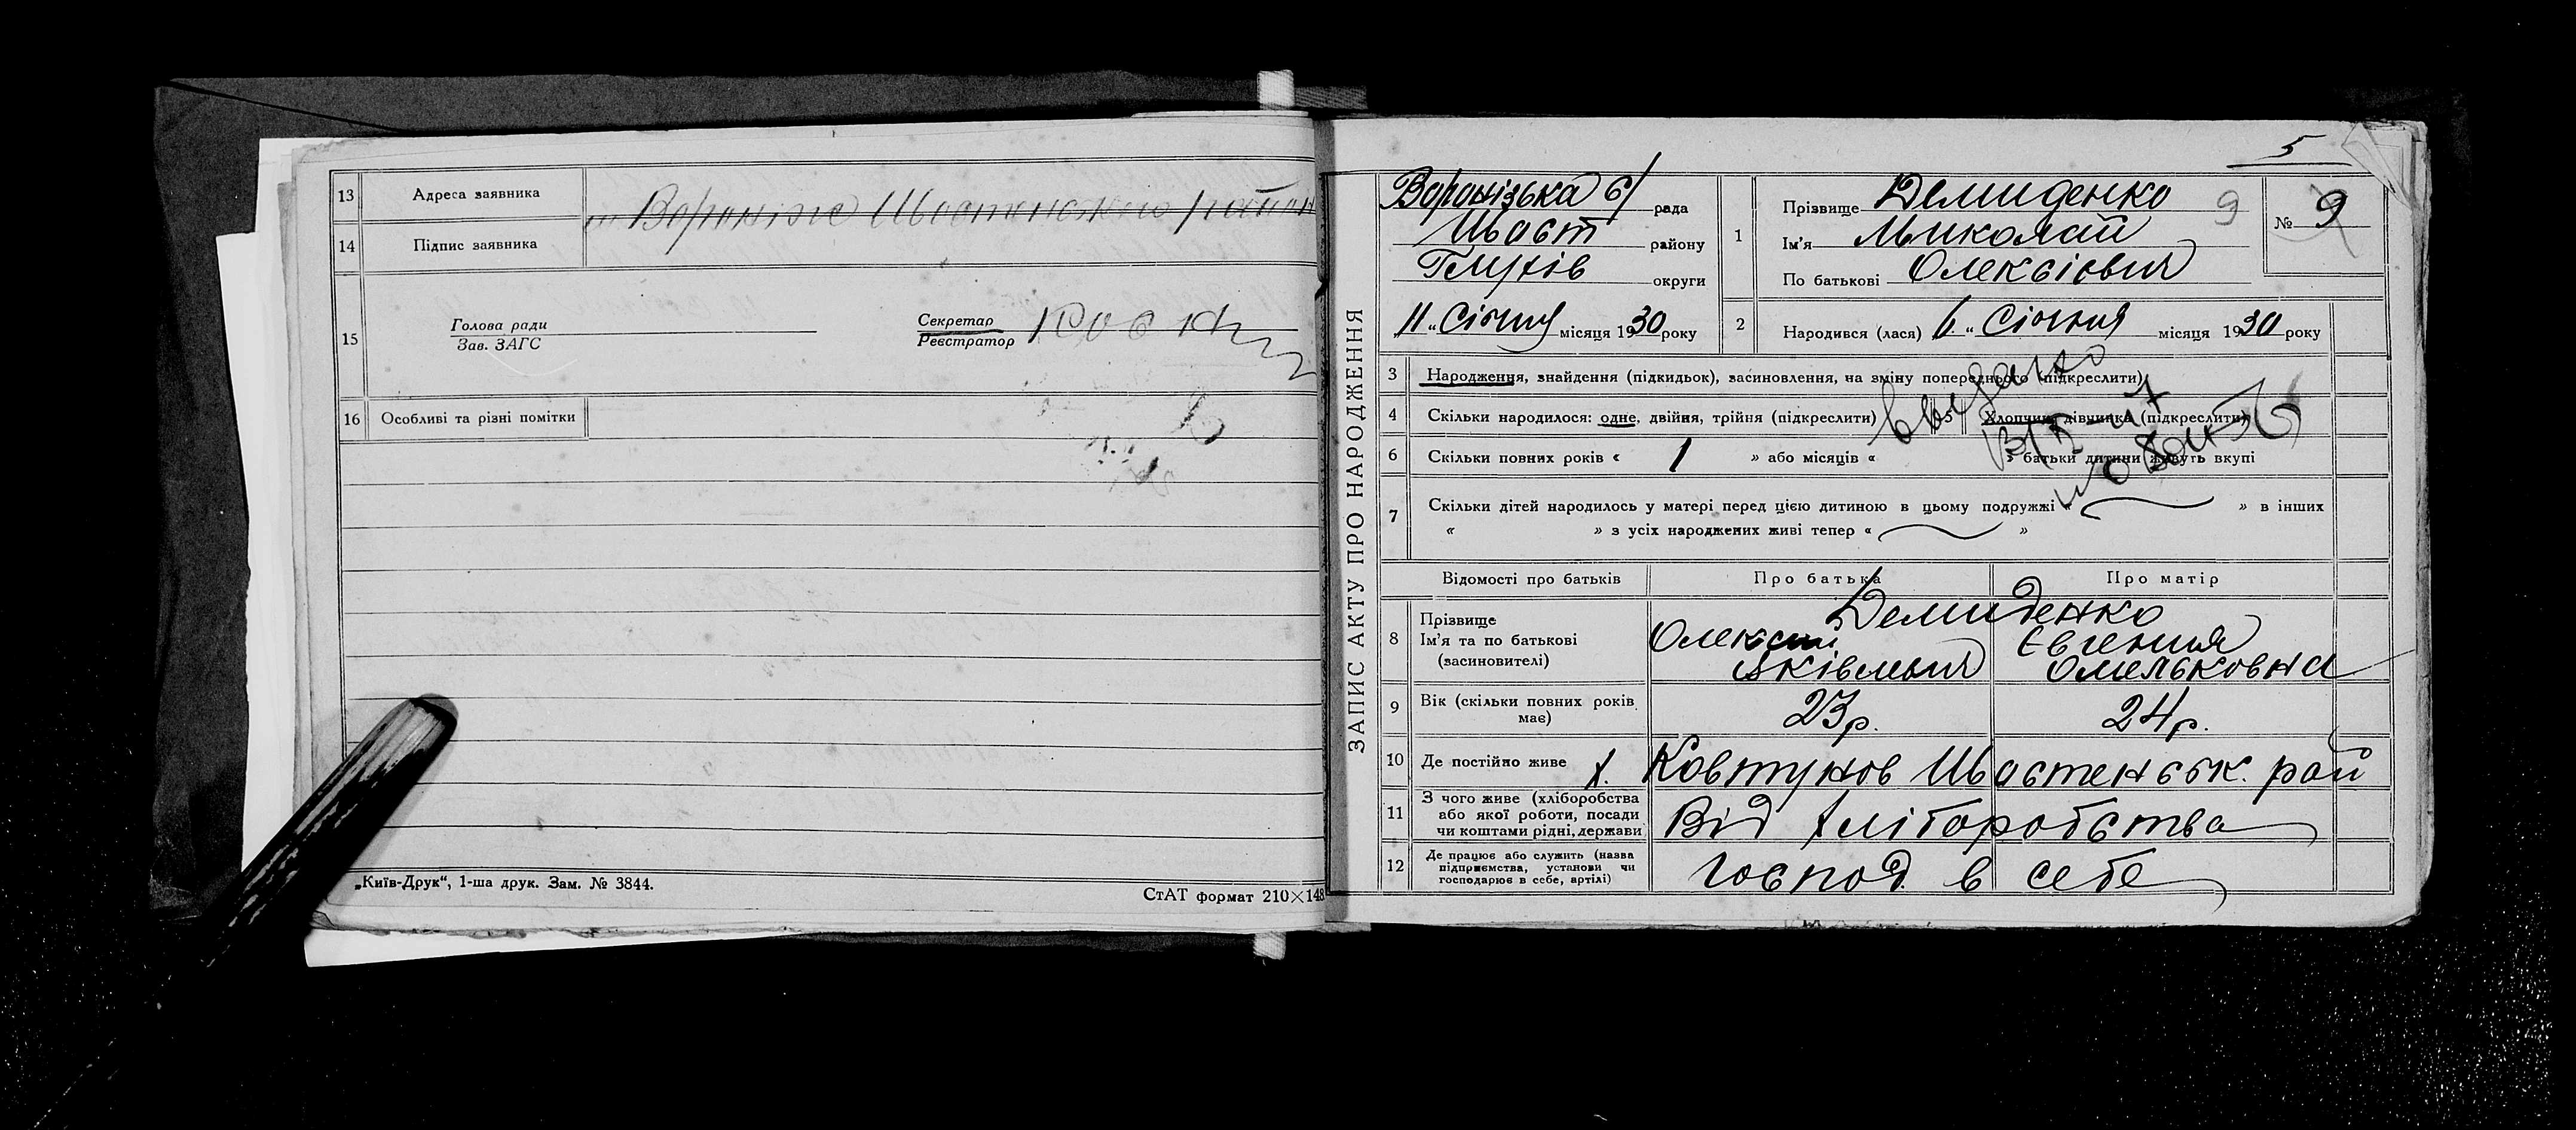 13 Адреса заявника м Вороніже Шостенского район
14 Підпис заявника
15 Голова ради
Зав. ЗАГС
Секретар
Реєстратор
16 Особливі та різні помітки
„Київ-Друк“, 1-ша друк. Зам. № 3844.
СтАТ формат 210×148
5
ЗАПИС АКТУ ПРО НАРОДЖЕННЯ
Воронізька с/ рада
Шост району
Глухів округи
„11 „ Січня місяця 1930 року
1 Прізвище Демиденко 9
Ім'я Миколай
По батькові Олексіович
№ 9
2 Народився (лася) 6 „ Січня місяця 1930 року
3 Народження, знайдення (підкидьок), засиновлення, на зміну попереднього (підкреслити)
4 Скільки народилося: одне, двійня, трійня (підкреслити)
5 Хлопчик, дівчинка (підкреслити)
6 Скільки повних років « 1 » або місяців « » батьки дитини живуть вкупі
7 Скільки дітей народилось у матері перед цією дитиною в цьому подружжі « » в інших
« » з усіх народжених живі тепер « »
Відомості про батьків Про батька Про матір
8 Прізвище Демиденко
Ім'я та по батькові Олексій Євгения
(засиновителі) Яківлевич Омельковна
9 Вік (скільки повних років має) 23 р. 24 р.
10 Де постійно живе х. Ковтунов Шостенськ. рай
11 З чого живе (хліборобства
або якої роботи, посади
чи коштами рідні, держави Від хліборобства
12 Де працює або служить (назва
підприємства, установи чи
господарює в себе, артілі) Господ. в себе